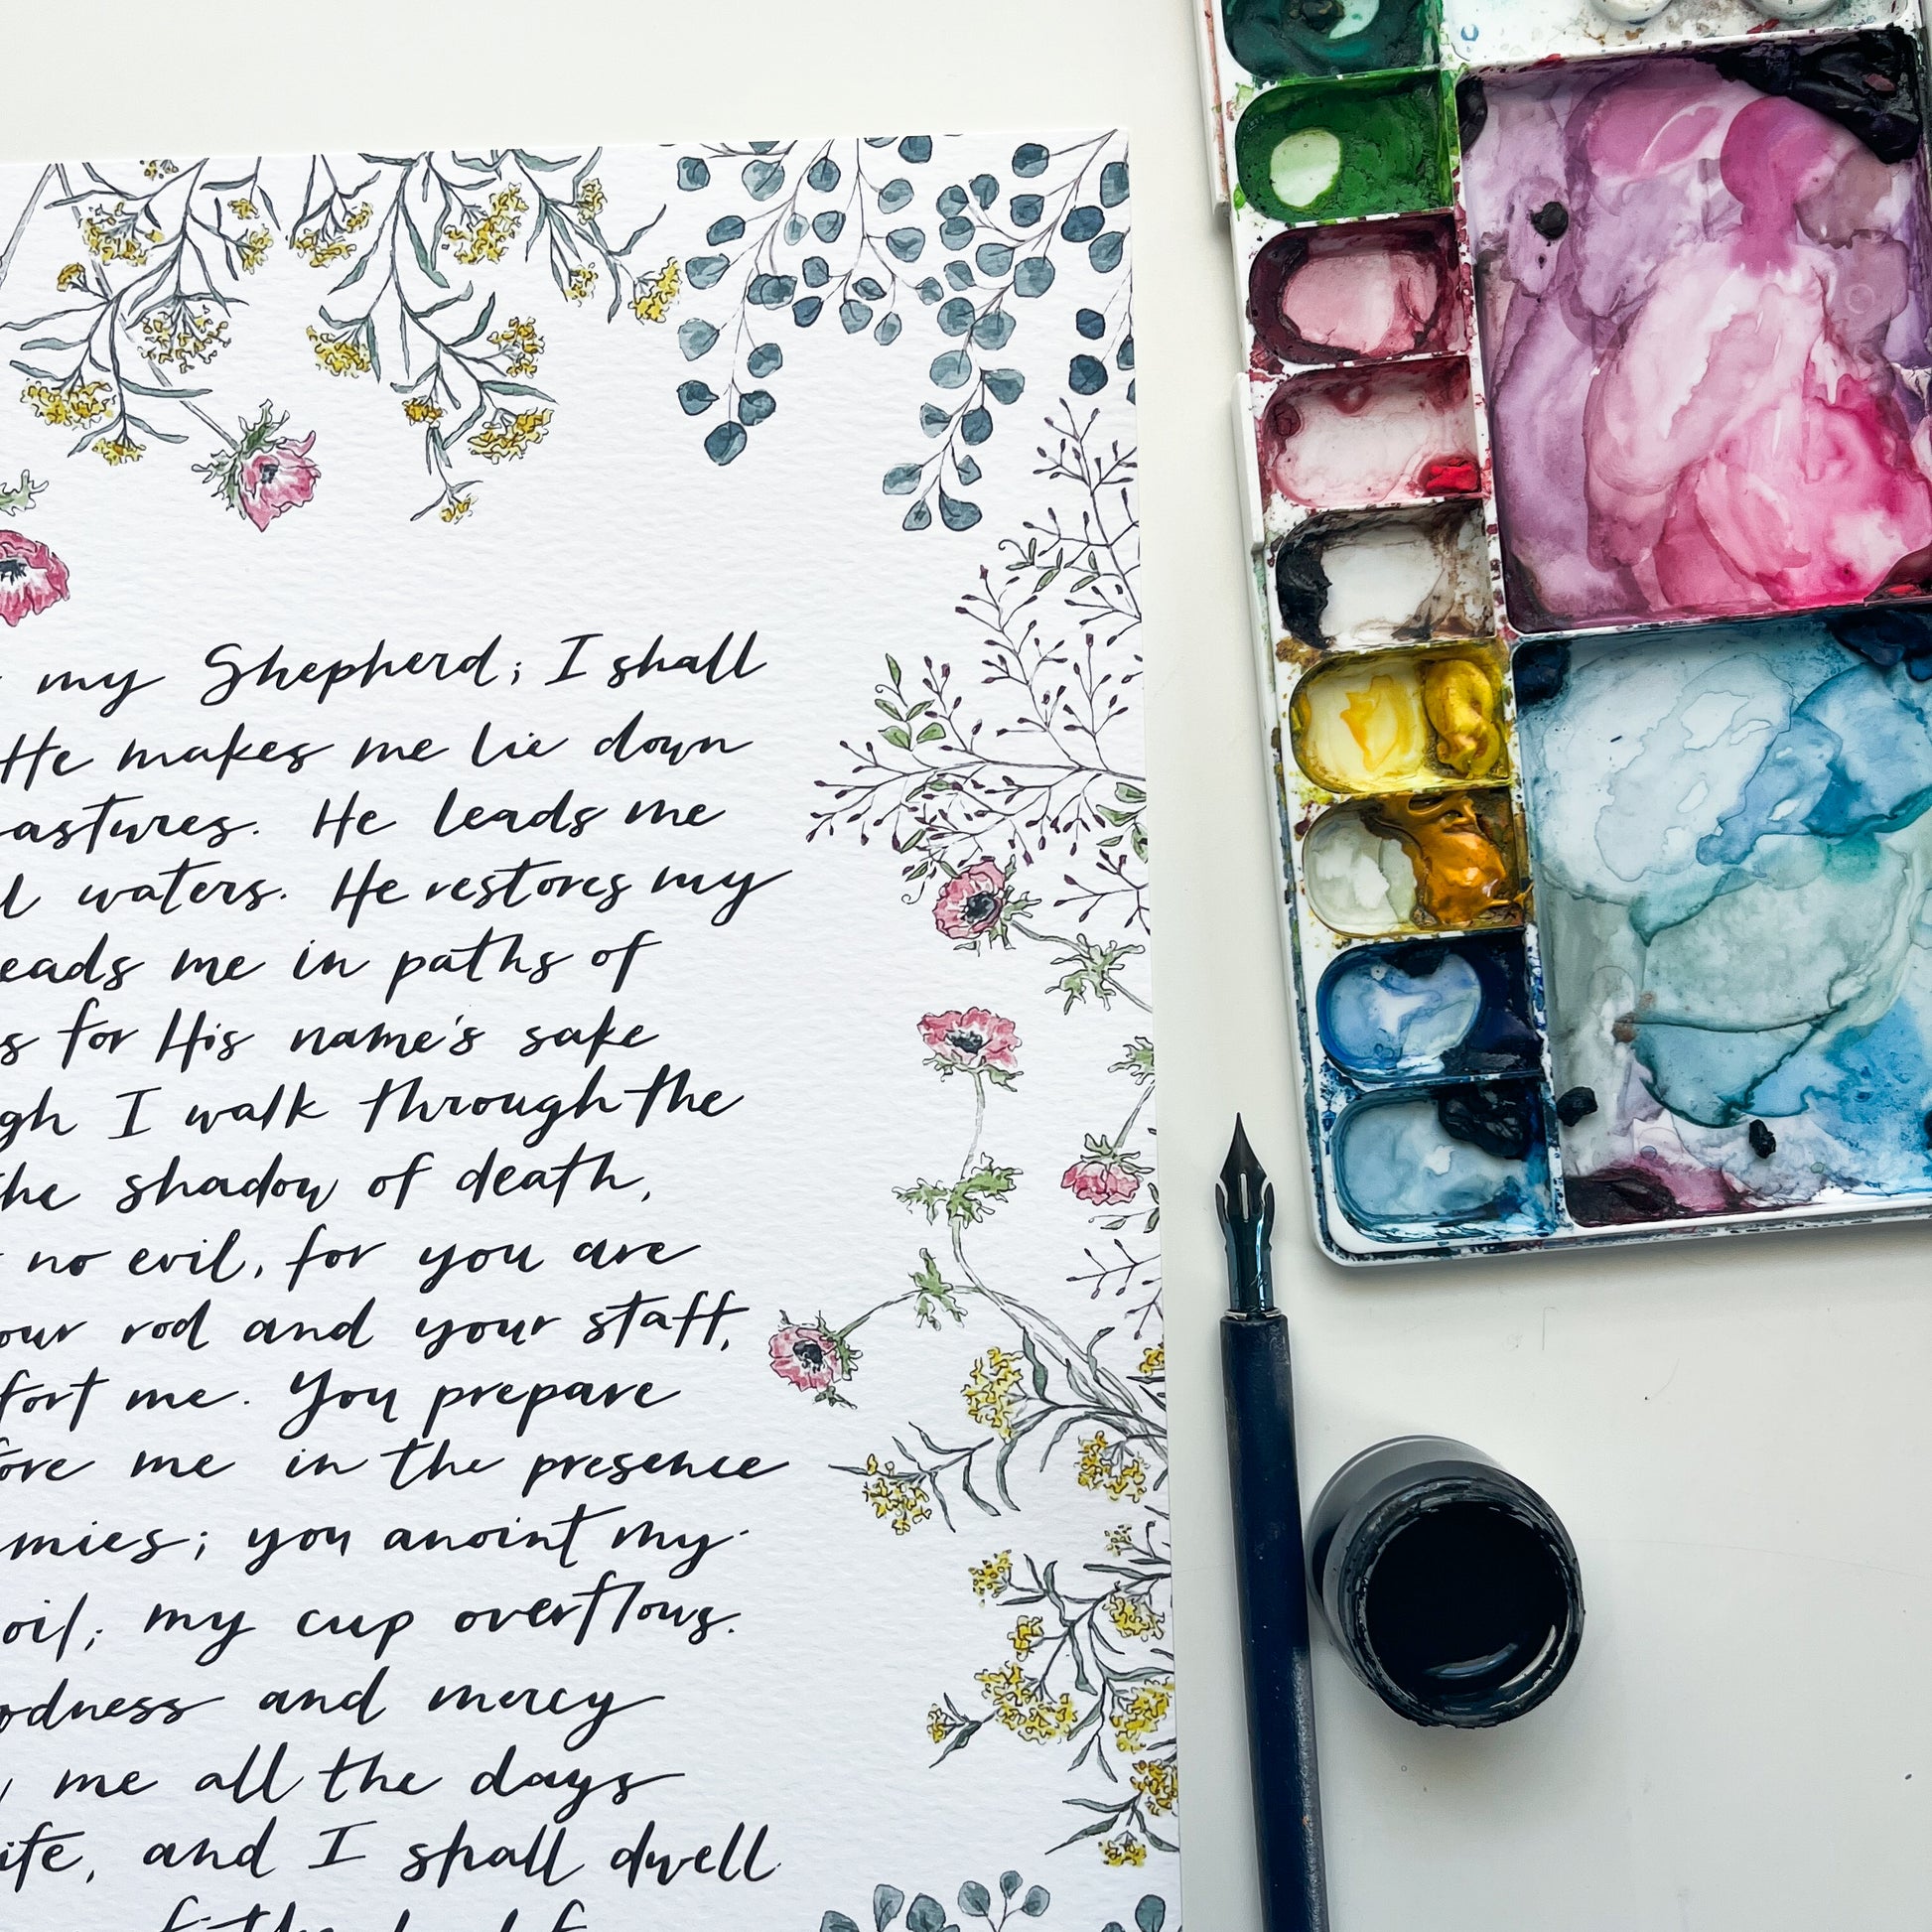 my Shepherd; I shall
He makes me lie down
astures. He leads me
l waters. He restores my
eads me in paths of
s for His name's sake
gh I walk through the
the shadow of death,
no evil, for you are
our rod and your staff,
fort me. You prepare
fore me in the presence
mies; you anoint my
oil; my cup overflows.
odness and mercy
me all the days
ife, and I shall dwell